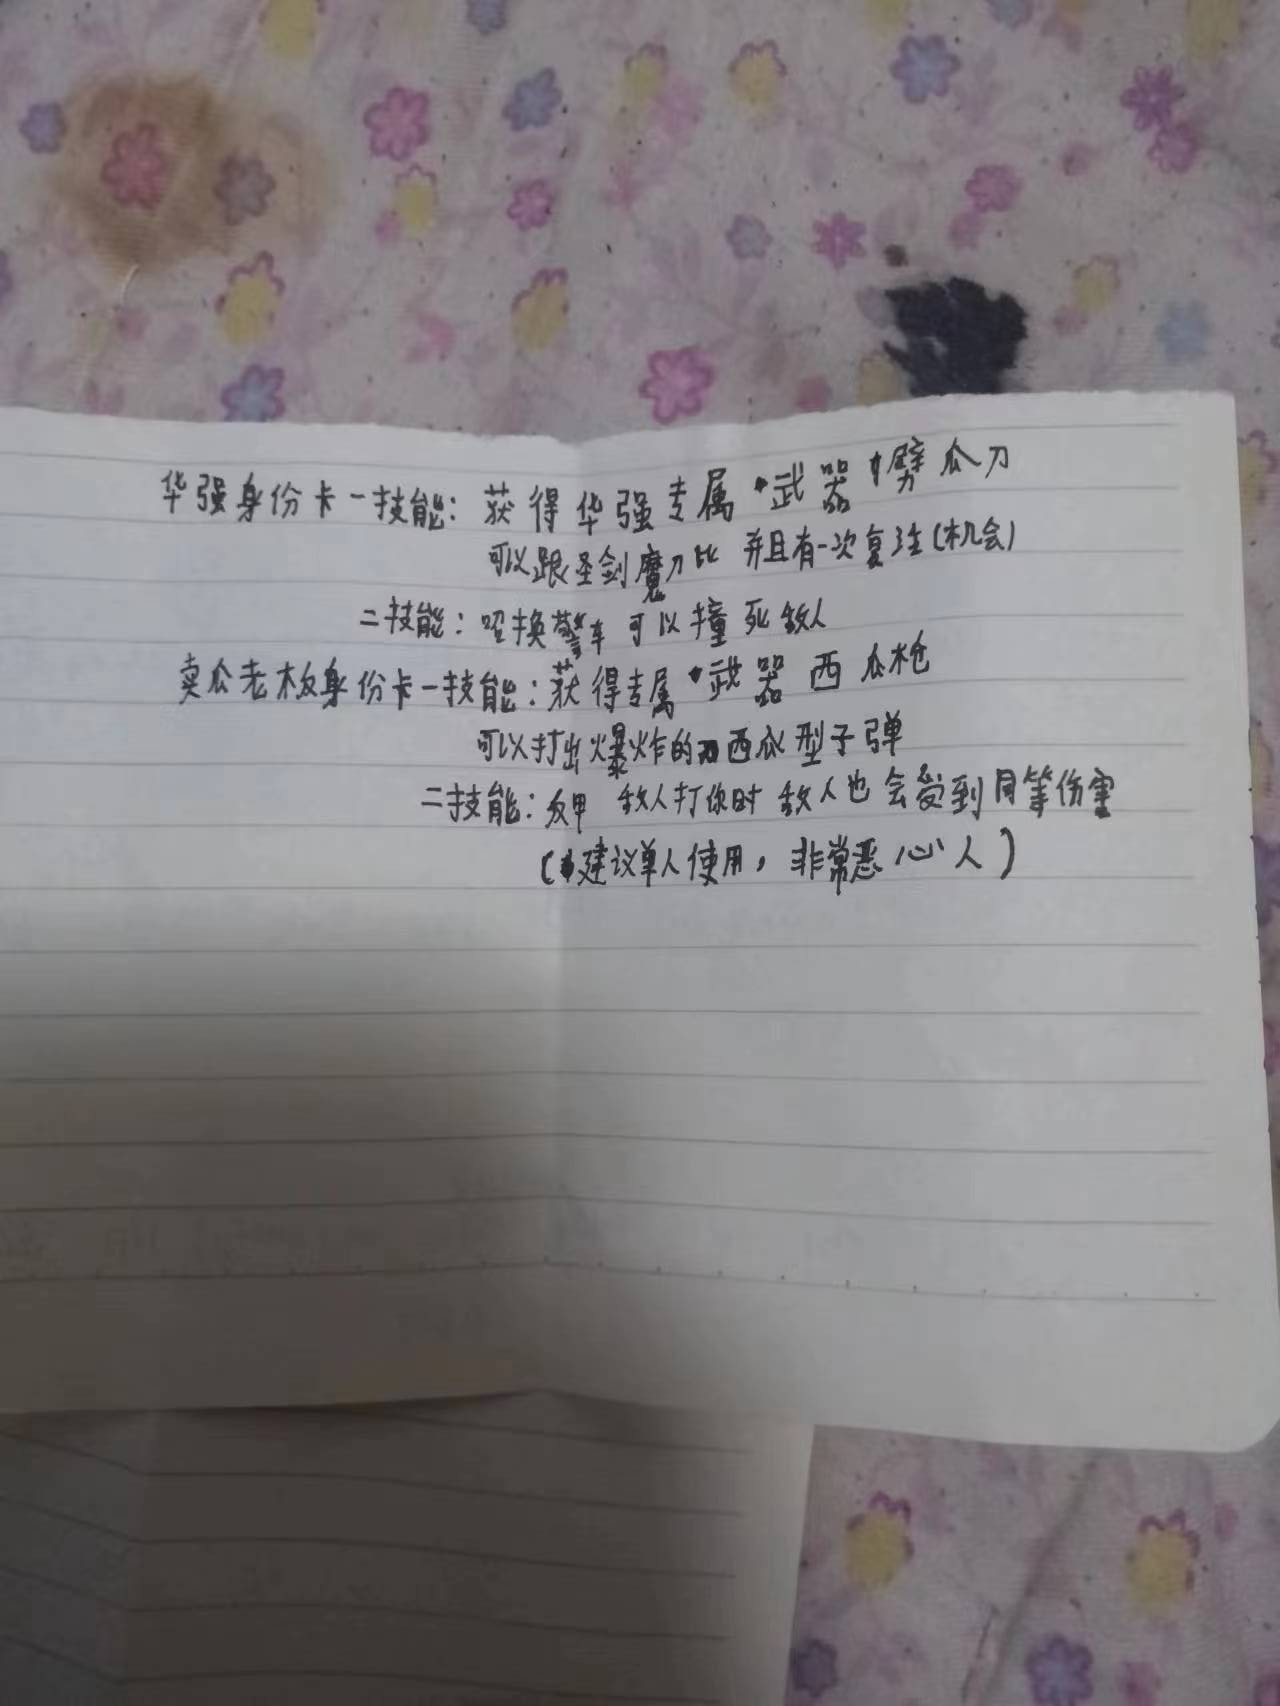 华强身份卡一技能：获得华强专属武器劈瓜刀
可以跟圣剑魔刀比 并且有一次复活(机会)
二技能：召换警车 可以撞死敌人
卖瓜老板身份卡一技能：获得专属武器 西瓜枪
可以打出爆炸的西瓜型子弹
二技能：反甲 敌人打你时 敌人也会受到同等伤害
(建议单人使用，非常恶心人)